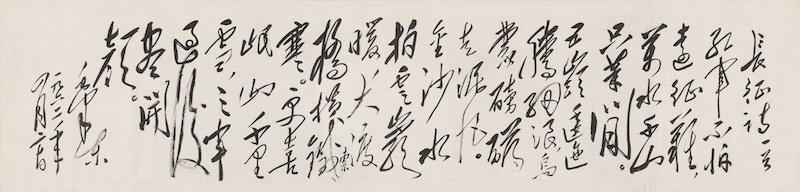 長征詩一首
紅軍不怕
遠征難,
萬水千山
只等閒。
五嶺逶迤
騰細浪,烏
蒙磅礴
走泥丸。
金沙水
拍雲巖
暖,大渡
橋橫鐵索
寒。更喜
岷山千里
雪,三軍
過後
盡開
顏。
毛澤東
一九六二年
四月廿日